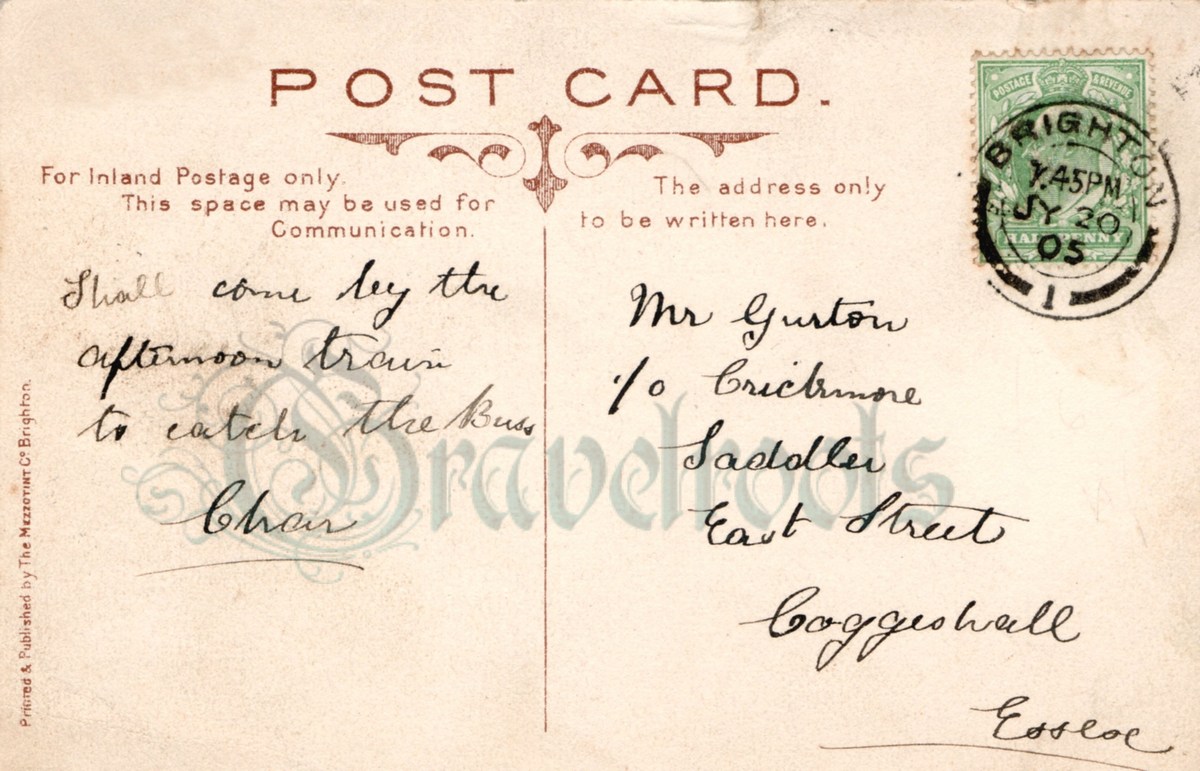 POST CARD.
For Inland Postage only.
This space may be used for
Communication.
The address only
to be written here.
POSTAGE & REVENUE
HALF PENNY
BRIGHTON
45PM
JY 20
05
1
Shall come by the
afternoon train
to catch the Buss
Char
Mr Gurton
c/o Crickmore
Saddler
East Street
Coggeshall
Essex
Gravelroots
Printed & Published by The Mezzotint Co Brighton.